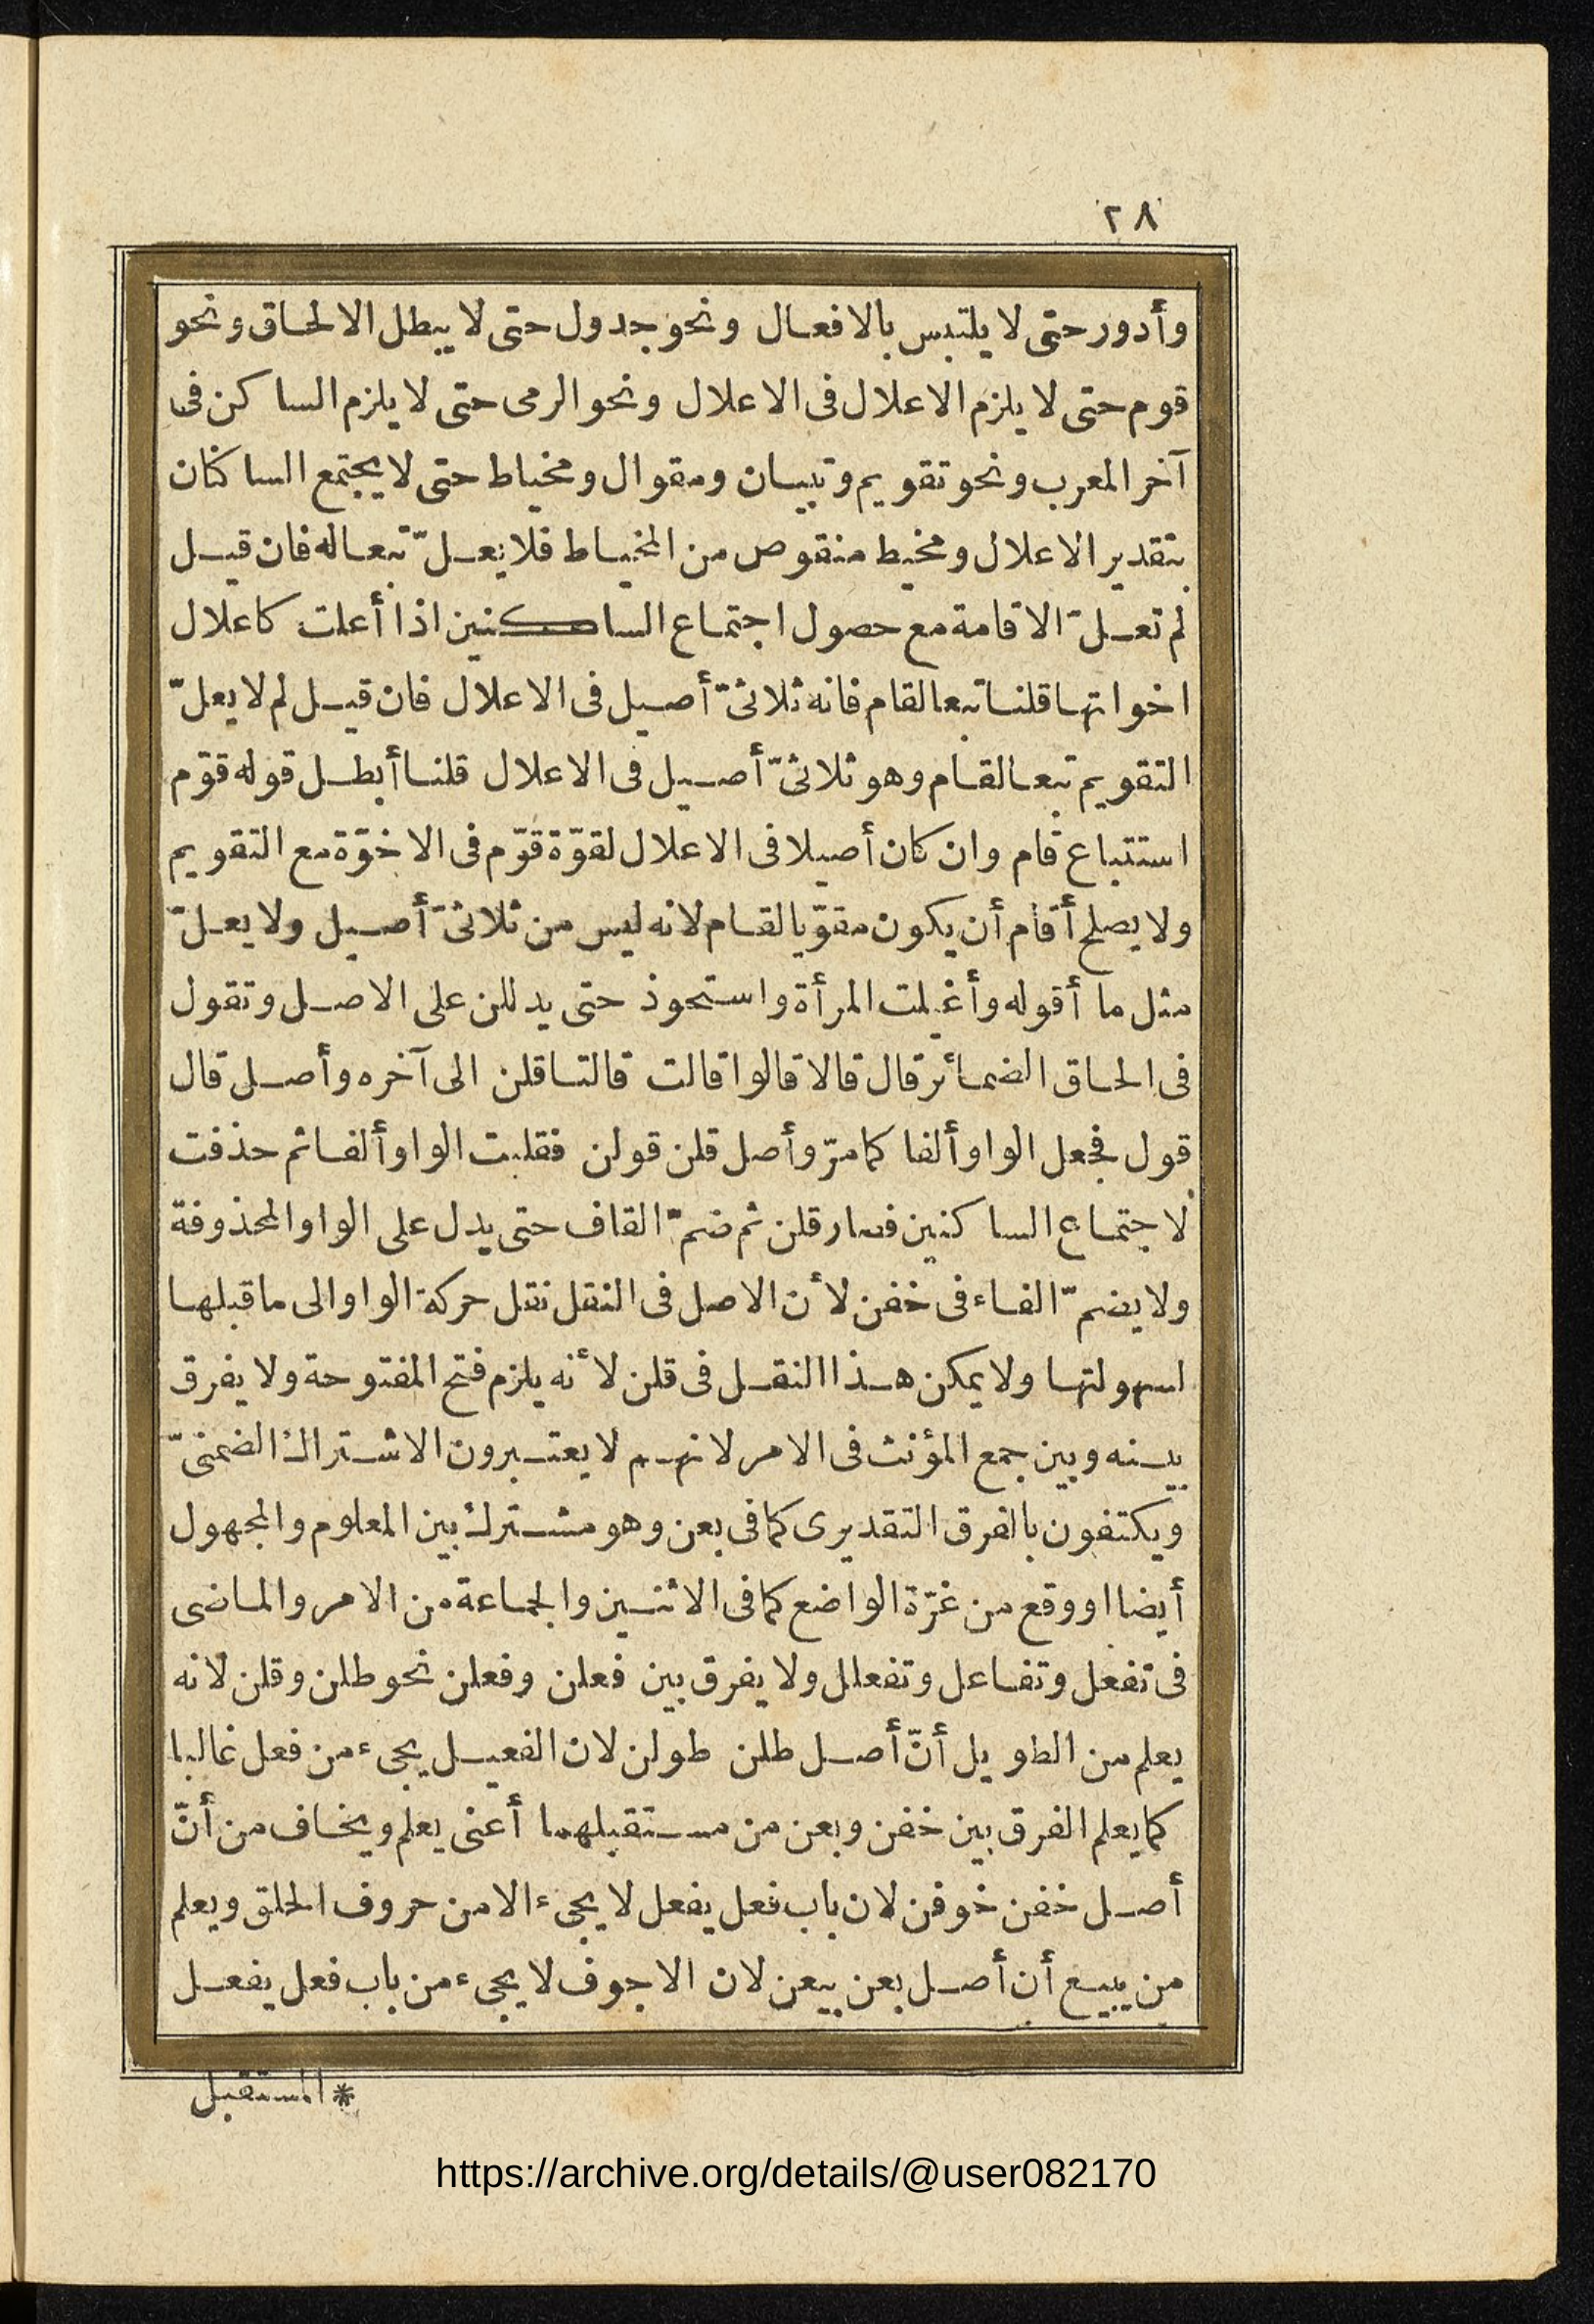 ٢٨
وأدور حتى لا يلتبس بالافعال ونحو جدول حتى لا يبطل الالحاق ونحو
قوم حتى لا يلزم الاعلال فى الاعلال ونحو الرمى حتى لا يلزم الساكن فى
آخر المعرب ونحو تقويم وتبيان ومقوال ومخياط حتى لا يجتمع الساكنان
بتقدير الاعلال ومخيط منقوص من المخياط فلا يعلّ تبعاله فان قيل
لم تعلّ الاقامة مع حصول اجتماع الساكنين اذا أعلت كاعلال
اخواتها قلنا تبعا لقام فانه ثلاثىّ أصيل فى الاعلال فان قيل لم لا يعلّ
التقويم تبعا لقام وهو ثلاثىّ أصيل فى الاعلال قلنا أبطل قوله قوّم
استتباع قام وان كان أصيلا فى الاعلال لقوّة قوّم فى الاخوّة مع التقويم
ولا يصلح أقام أن يكون مقوّيا لقام لانه ليس من ثلاثىّ أصيل ولا يعلّ
مثل ما أقوله وأغيلت المرأة واستحوذ حتى يدللن على الاصل وتقول
فى الحاق الضمائر قال قالا قالوا قالت قالتا قلن الى آخره وأصل قال
قول فجعل الواو ألفا كما مرّ وأصل قلن قولن فقلبت الواو ألفا ثم حذفت
لاجتماع الساكنين فصار قلن ثم ضمّ القاف حتى يدل على الواو المحذوفة
ولا يضمّ الفاء فى خفن لأن الاصل فى النقل نقل حركة الواو الى ما قبلها
لسهولتها ولا يمكن هذا النقل فى قلن لأنه يلزم فتح المفتوحة ولا يفرق
بينه وبين جمع المؤنث فى الامر لانهم لا يعتبرون الاشتراك الضمنىّ
ويكتفون بالفرق التقديرى كما فى بعن وهو مشترك بين المعلوم والمجهول
أيضا او وقع من غرّة الواضع كما فى الاثنين والجماعة من الامر والماضى
فى تفعل وتفاعل وتفعلل ولا يفرق بين فعلن وفعلن نحو طلن وقلن لانه
يعلم من الطويل أنّ أصل طلن طولن لان الفعيل يجىء من فعل غالبا
كما يعلم الفرق بين خفن وبعن من مستقبلهما أعنى يعلم ويخاف من أنّ
أصل خفن خوفن لان باب فعل يفعل لا يجىء الا من حروف الحلق ويعلم
من يبيع أن أصل بعن بيعن لان الاجوف لا يجىء من باب فعل يفعل
* المستقبل
https://archive.org/details/@user082170